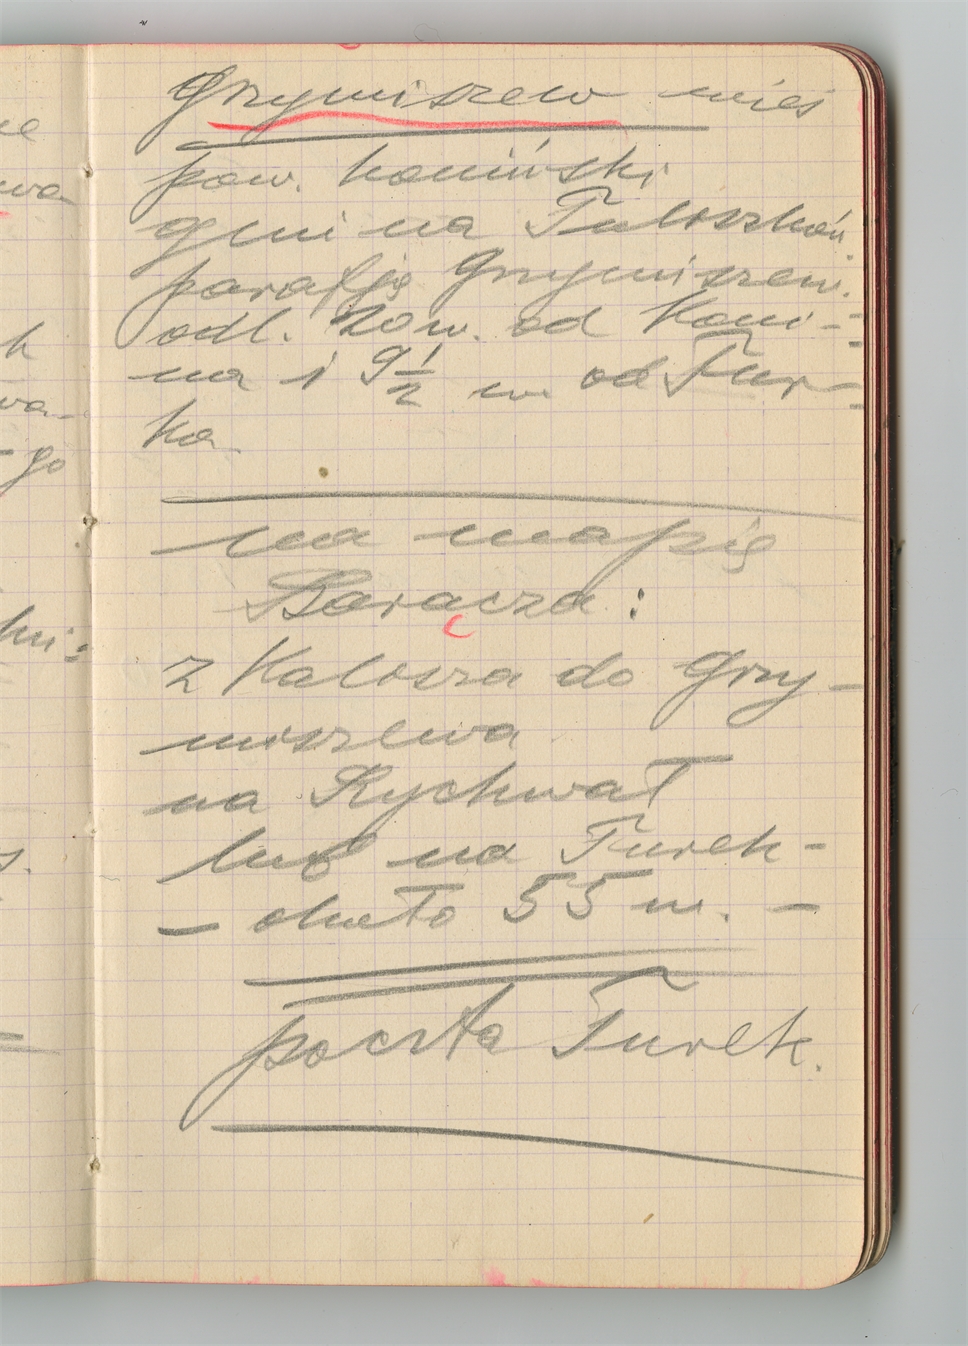 Grzymiszew wieś
pow. koniński
gmina Tuliszków
parafja Grzymiszew.
odl. 20 w. od Koni-
na i 9 1/2 w. od Tur-
ka.
na mapie
Baracza:
z Kalisza do Grzy-
miszewa
na Rychwał
lub na Turek -
- około 55 w. -
poczta Turek.